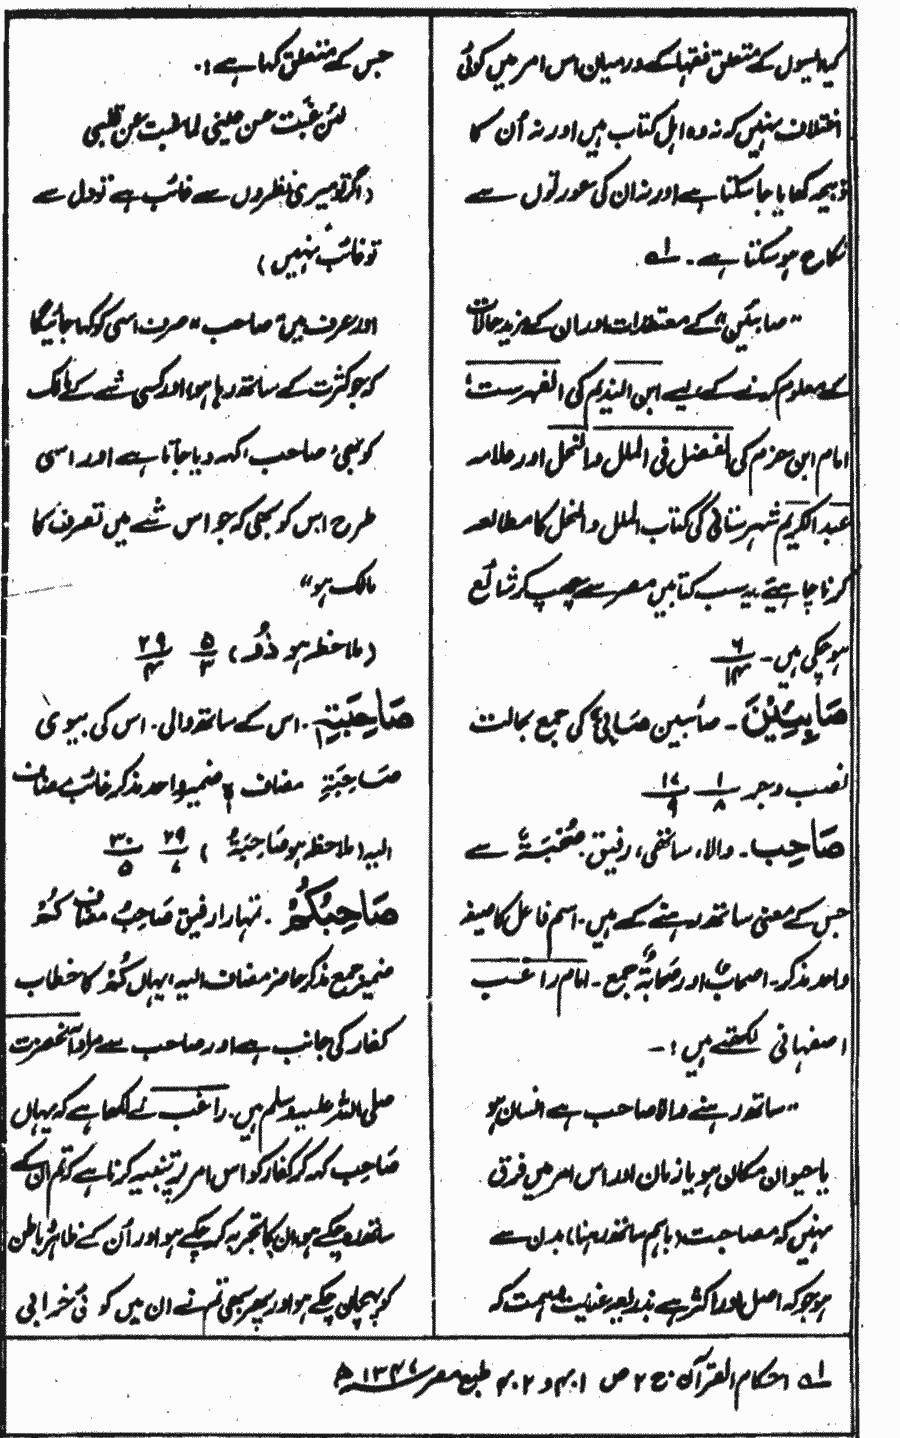 کہ ایسوں کے متعلق فقہا کے درمیان اس امر میں کوئی
اختلاف نہیں کہ نہ وہ اہل کتاب ہیں اور نہ اُن کا
ذبیحہ کھایا جا سکتا ہے اور نہ ان کی عورتوں سے
نکاح ہو سکتا ہے۔ لہ
"صابئین" کے معتقدات اور ان کے مزید حالات
کے معلوم کرنے کے لیے ابن الندیم کی الفہرست،
امام ابن حزم کی الفصل فی الملل والنحل اور علامہ
عبد الکریم شہرستانی کی کتاب الملل والنحل کا مطالعہ
کرنا چاہیئے یہ سب کتابیں مصر سے چھپ کر شائع
ہو چکی ہیں۔ ۶/۱۴
صَابِئِیْنَ۔ صائبین صَابِئٌ کی جمع بحالت
نصب و جر ۱/۸ ۱۷/۹
صَاحِب۔ والا، ساتھی، رفیق صُحْبَۃٌ سے
جس کے معنی ساتھ رہنے کے ہیں۔ اسم فاعل کا صیغہ
واحد مذکر۔ اصحاب اور صَحَابَۃٌ جمع۔ امام راغب
اصفہانی لکھتے ہیں :۔
"ساتھ رہنے والا صاحب ہے انسان ہو
یا حیوان مکان ہو یا زمان اور اس امر میں فرق
نہیں کہ مصاحبت (باہم ساتھ رہنا) بدن سے
ہو جو کہ اصل اور اکثر ہے بذریعہ عنایت و ہمت کہ
جس کے متعلق کہا ہے :۔
لئن غبت عن عینی لما غبت عن قلبی
(اگر تو میری نظروں سے غائب ہے تو دل سے
تو غائب نہیں)
اور عرف میں "صاحب" صرف اسی کو کہا جائیگا
کہ جو کثرت کے ساتھ رہا ہو، اور کسی شے کے مالک
کو بھی، صاحب، کہہ دیا جاتا ہے اور اسی
طرح اس کو بھی کہ جو اس شے میں تصرف کا
مالک ہو"
(ملاحظہ ہو ذُو) ۵/۳ ۲۹/۴
صَاحِبَتِہٖ۔ اس کے ساتھ والی۔ اس کی بیوی
صَاحِبَۃِ مضاف ہٖ ضمیر واحد مذکر غائب مضاف
الیہ (ملاحظہ ہو صَاحِبَۃٌ) ۲۹/۷ ۳۰/۵
صَاحِبُکُمْ۔ تمہارا رفیق صَاحِبُ مضاف کُمْ
ضمیر جمع مذکر حاضر مضاف الیہ، یہاں کُمْ کا خطاب
کفار کی جانب ہے اور صاحب سے مراد آنحضرت
صلی اللہ علیہ وسلم ہیں۔ راغب نے لکھا ہے کہ یہاں
صَاحِب کہہ کر کفار کو اس امر پر تنبیہ کرنا ہے کہ تم ان کے
ساتھ رہ چکے ہو، ان کا تجربہ کر چکے ہو اور اُن کے ظاہر و باطن
کو پہچان چکے ہو اور پھر بھی تم نے ان میں کو ئی خرابی
لہ احکام القرآن ج ۲ ص ۴۰۱ و ۴۰۲ طبع مصر ۱۳۴۷ھ